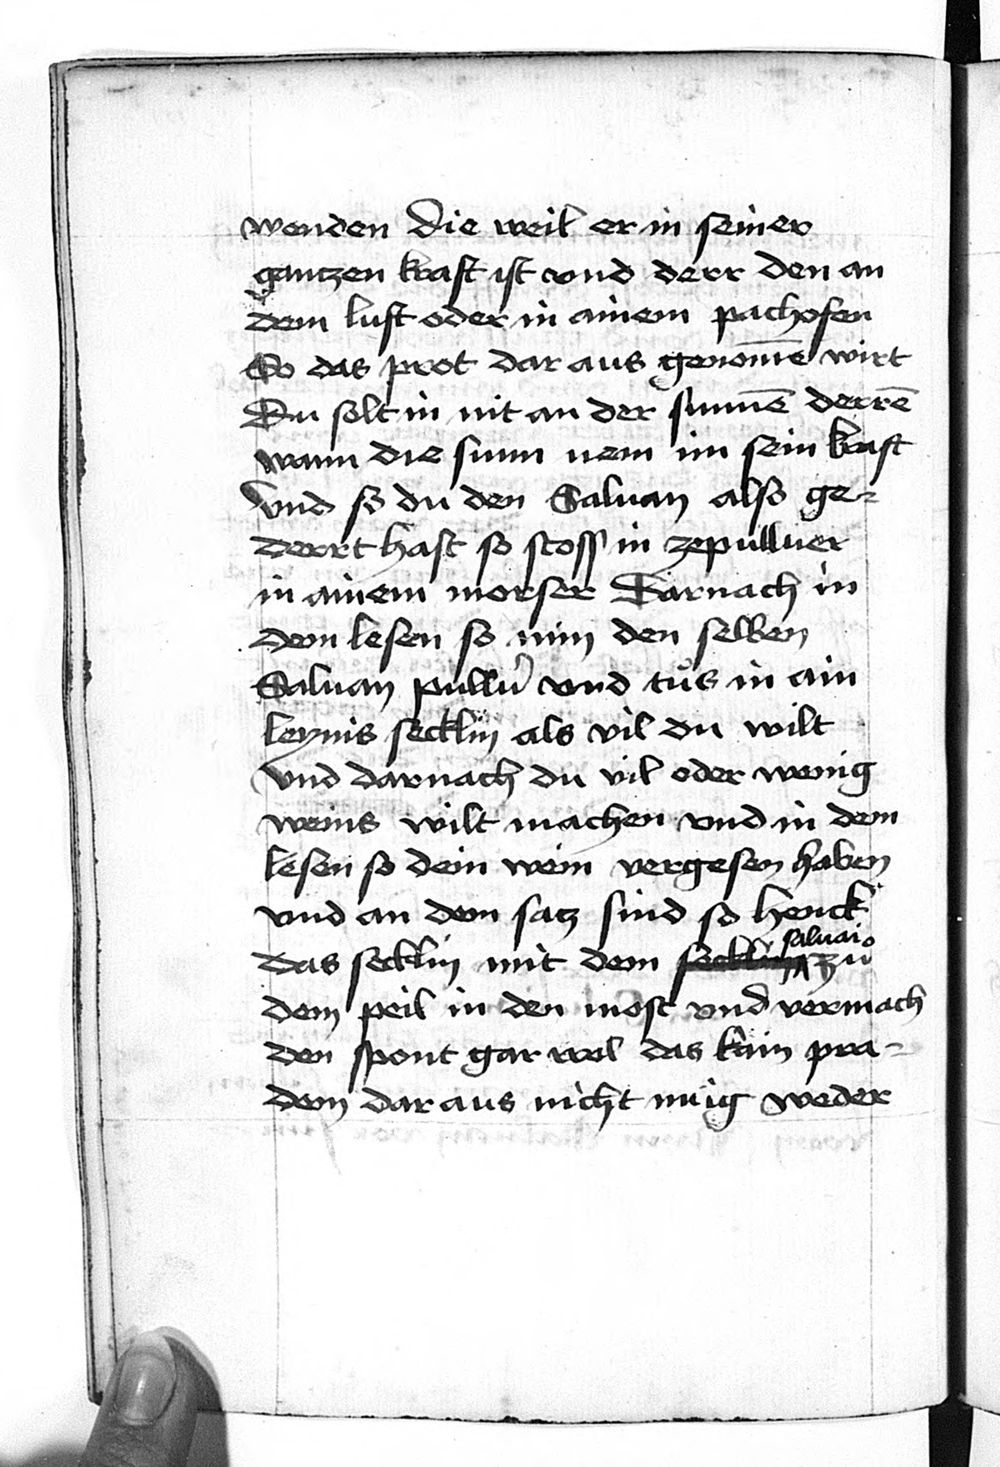 wenden die weil er in seiner
gantzen kraft ist vnd derr den an
dem luft oder in ainem pachofen
So das prot dar aus genomē wirt
Du solt in nit an der sunnē derrē
wann die sunn nem im sein kraft
Vnd so du den Saluan also ge-
derrt hast so stoss in ze pulluer
in ainem morser Darnach in
dem lesen so nim den selben
Saluan pulluer vnd tůs in ain
leynis secklin als vil du wilt
vnd darnach du vil oder wenig
weins wilt machen vnd in dem
lesen so dein wein vergesen haben
vnd an dem satz sind so henck
das secklin mit dem secklin saluan zů
dem peil in den most vnd vermach
den spont gar wol das kain pra-
dem dar aus nicht mùg weder